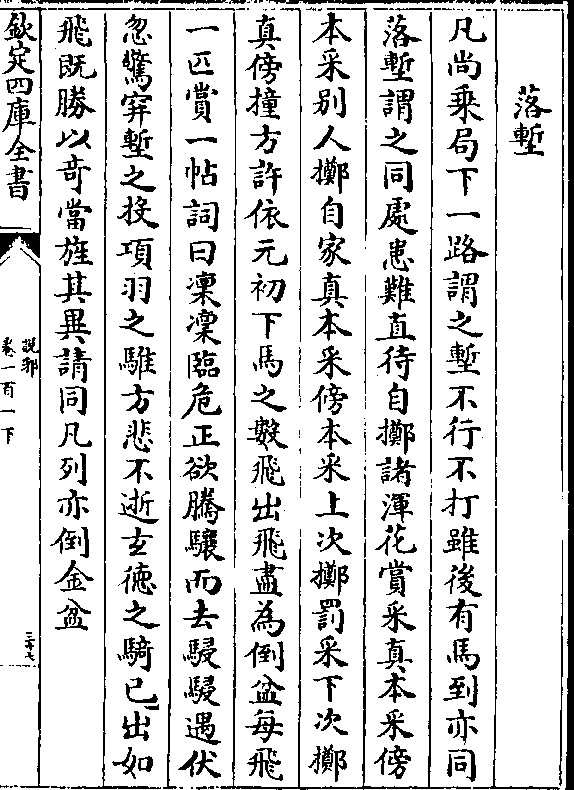 落塹
凡尚乗局下一路謂之塹不行不打雖後有馬到亦同
落塹謂之同處患難直待自擲諸渾花賞采真本采傍
本采别人擲自家真本采傍本采上次擲罰采下次擲
真傍撞方許依元初下馬之數飛出飛盡為倒盆每飛
一匹賞一帖詞曰凜凜臨危正欲騰驤而去駸駸遇伏
忽驚穽塹之投項羽之騅方悲不逝玄徳之騎已出如
飛既勝以竒當旌其異請同凡列亦倒金盆
欽定四庫全書
説郛
卷一百一下
三十七